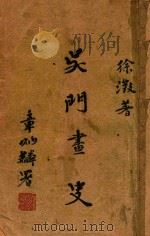 徐澂著
吳門畫史
章炳麟署